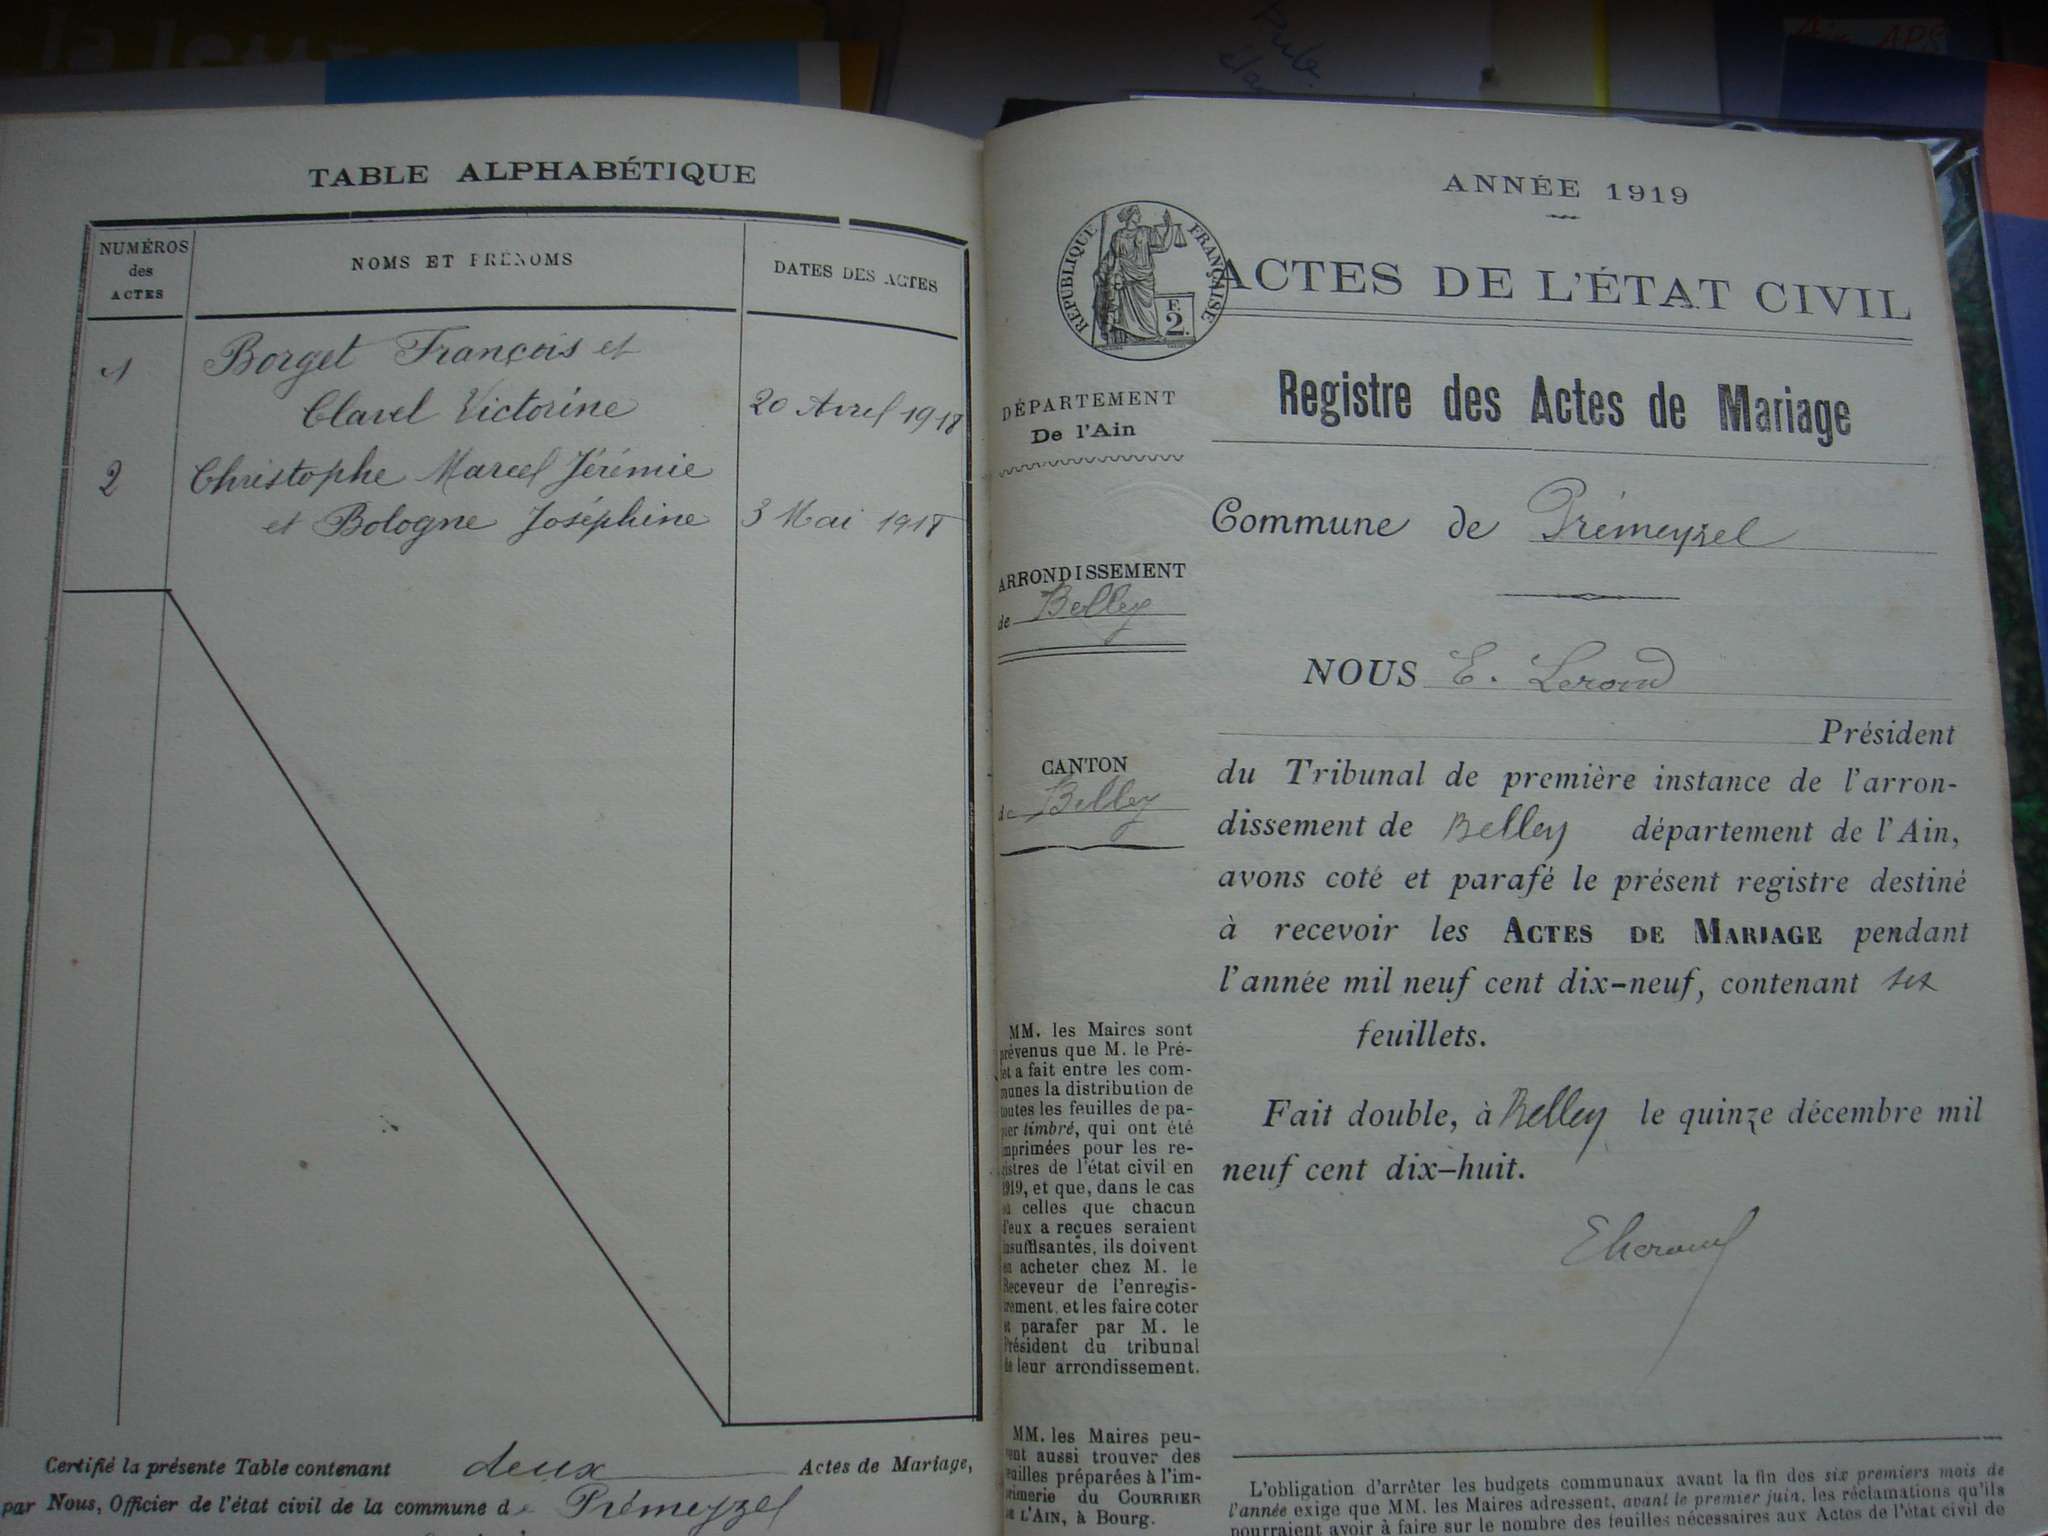 la leure
TABLE ALPHABÉTIQUE
NUMÉROS
des
ACTES
NOMS ET PRÉNOMS
DATES DES ACTES
1
Borget François et
Clavel Victorine
20 Avril 1918
2
Christophe Marcel Jérémie
et Bologne Joséphine
3 Mai 1918
Certifié la présente Table contenant deux Actes de Mariage,
par Nous, Officier de l'état civil de la commune de Prémeyzel
ANNÉE 1919
RÉPUBLIQUE FRANÇAISE
F.
2.
ACTES DE L'ÉTAT CIVIL
DÉPARTEMENT
De l'Ain
ARRONDISSEMENT
de Belley
CANTON
de Belley
MM. les Maires sont
prévenus que M. le Pré-
fet a fait entre les com-
munes la distribution de
toutes les feuilles de pa-
pier timbré, qui ont été
imprimées pour les re-
gistres de l'état civil en
1919, et que, dans le cas
où celles que chacun
d'eux a reçues seraient
insuffisantes, ils doivent
en acheter chez M. le
Receveur de l'enregis-
trement, et les faire coter
et parafer par M. le
Président du tribunal
de leur arrondissement.
MM. les Maires peu-
vent aussi trouver des
feuilles préparées à l'im-
primerie du COURRIER
DE L'AIN, à Bourg.
Registre des Actes de Mariage
Commune de Prémeyzel
NOUS E. Lerond
Président
du Tribunal de première instance de l'arron-
dissement de Belley département de l'Ain,
avons coté et parafé le présent registre destiné
à recevoir les ACTES DE MARIAGE pendant
l'année mil neuf cent dix-neuf, contenant six
feuillets.
Fait double, à Belley le quinze décembre mil
neuf cent dix-huit.
L'obligation d'arrêter les budgets communaux avant la fin des six premiers mois de
l'année exige que MM. les Maires adressent, avant le premier juin, les réclamations qu'ils
pourraient avoir à faire sur le nombre des feuilles nécessaires aux Actes de l'état civil de